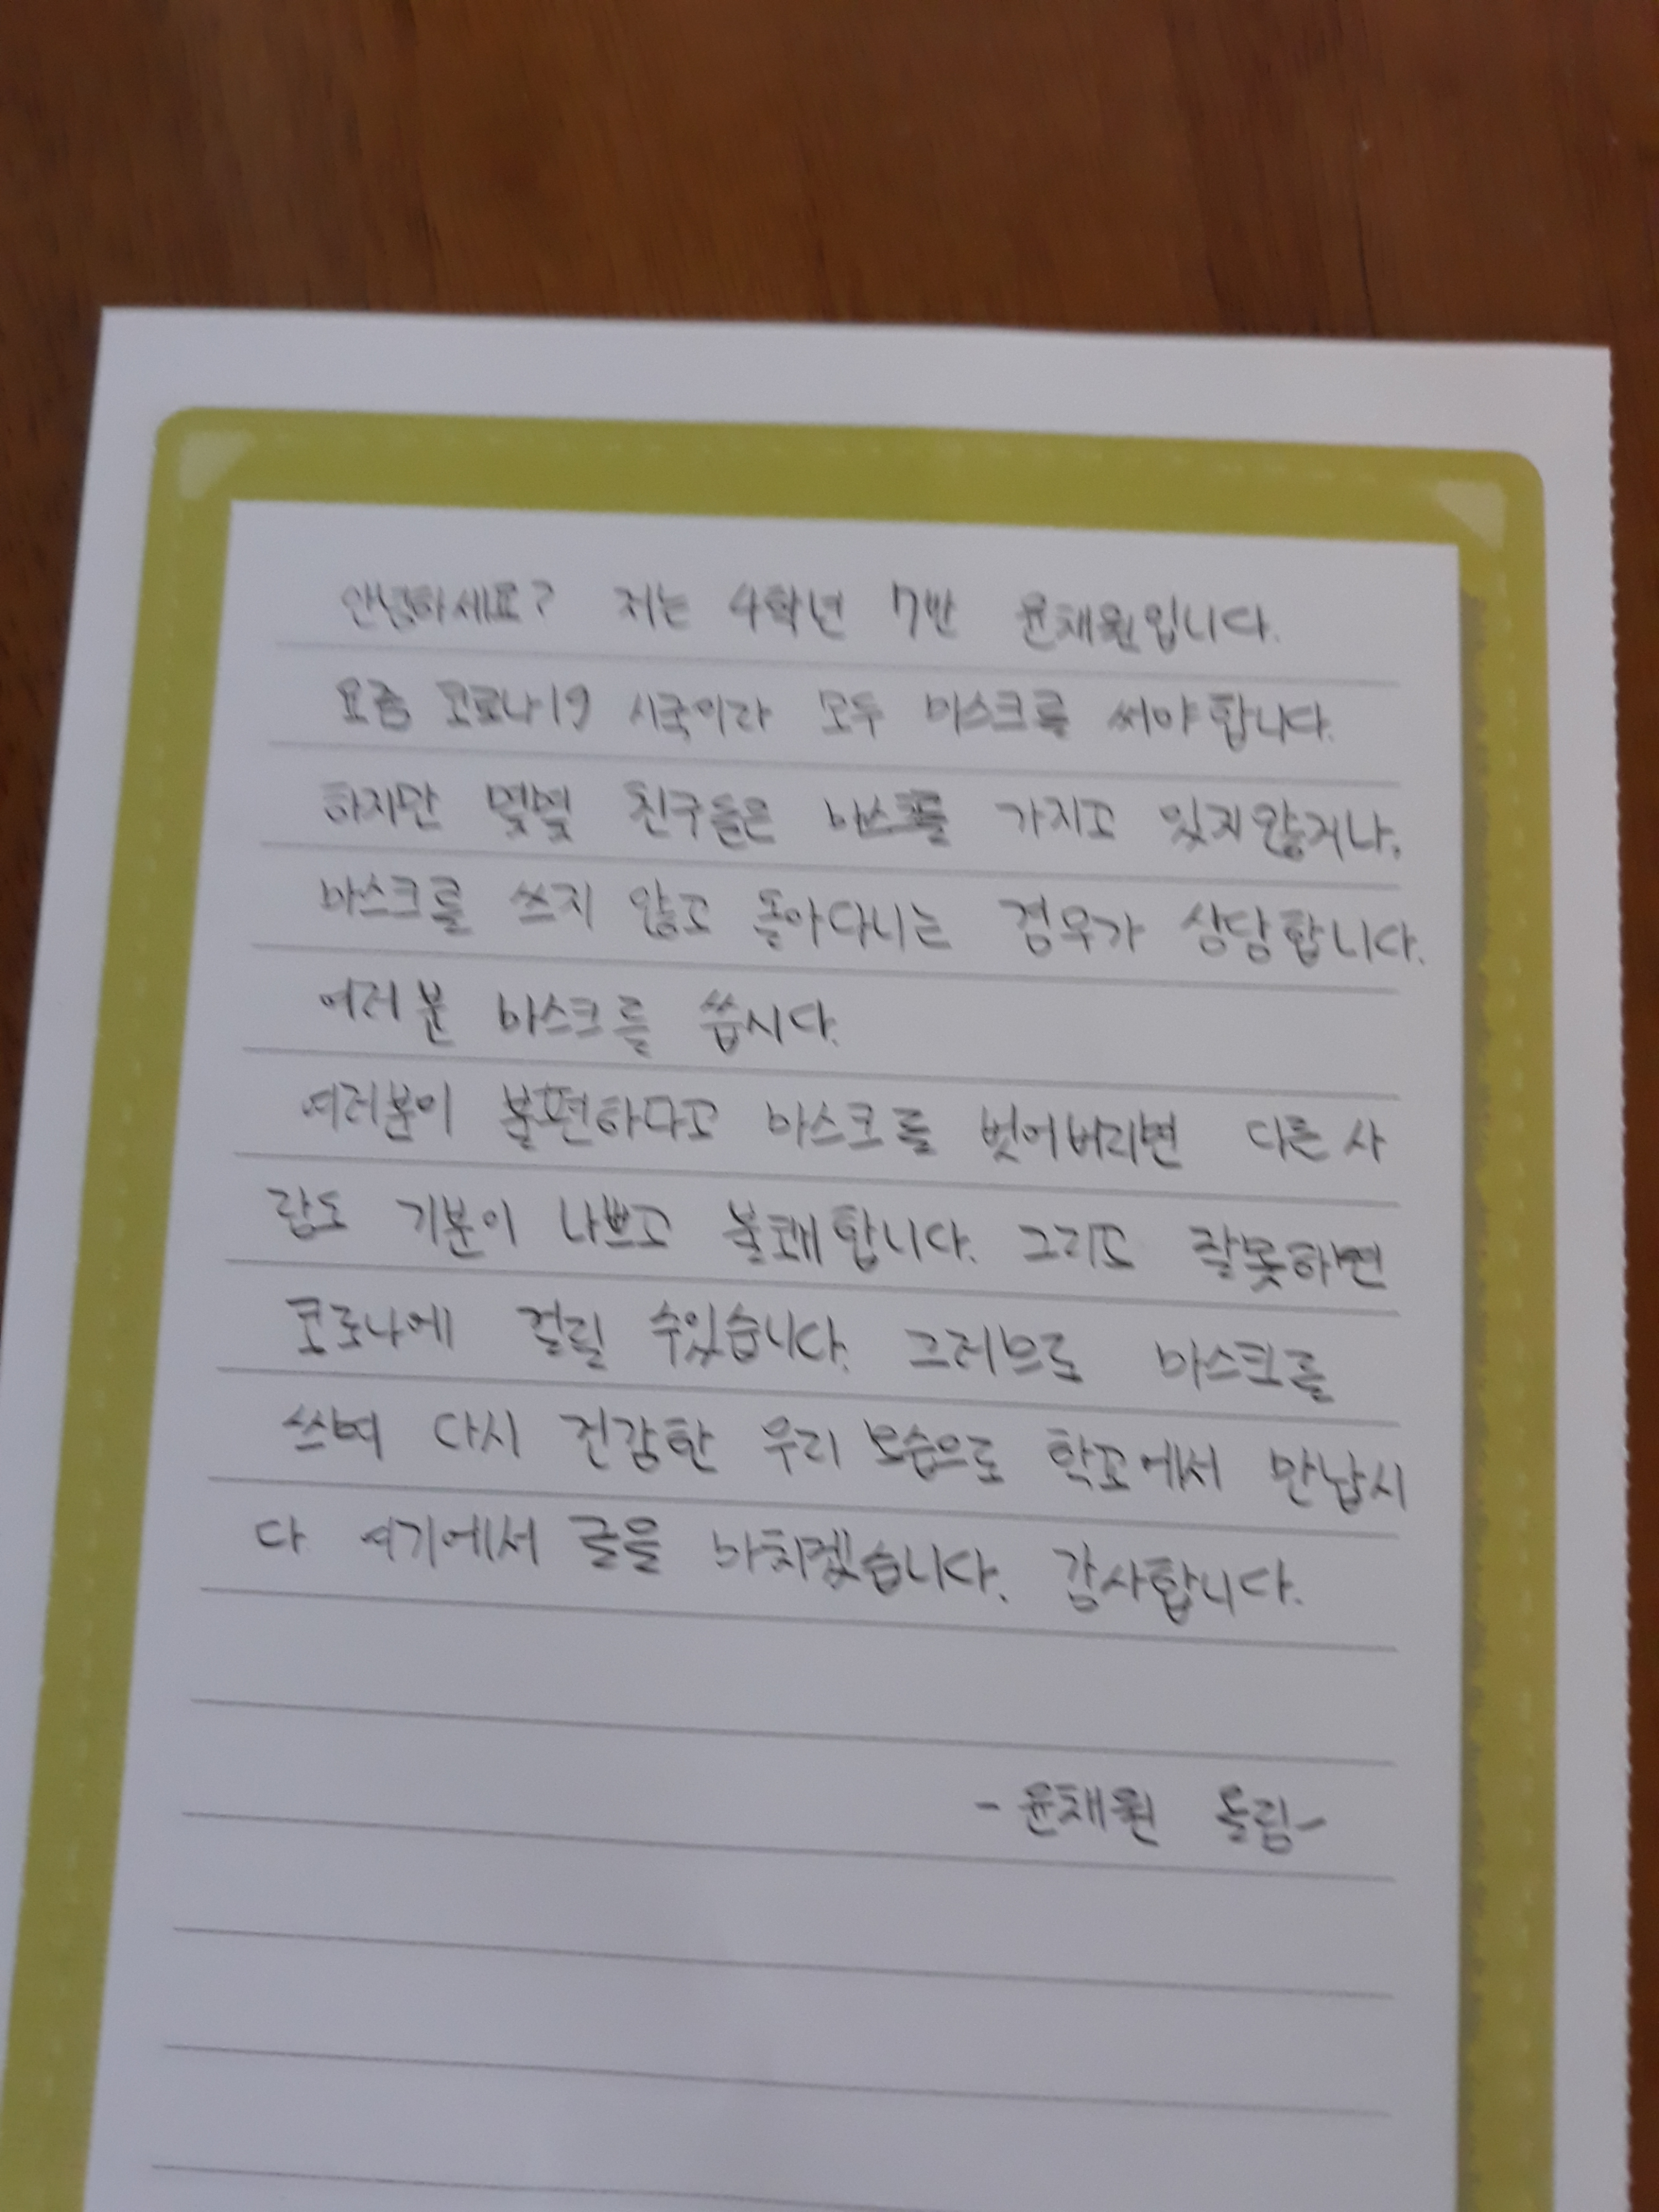 안녕하세요? 저는 4학년 7반 윤채원입니다.
요즘 코로나19 시국이라 모두 마스크를 써야합니다.
하지만 몇몇 친구들은 마스크를 가지고 있지않거나,
마스크를 쓰지 않고 돌아다니는 경우가 상당합니다.
여러분 마스크를 씁시다.
여러분이 불편하다고 마스크를 벗어버리면 다른 사
람도 기분이 나쁘고 불쾌합니다. 그리고 잘못하면
코로나에 걸릴 수있습니다. 그러므로 마스크를
쓰며 다시 건강한 우리 모습으로 학교에서 만납시
다 여기에서 글을 마치겠습니다. 감사합니다.
- 윤채원 올림-